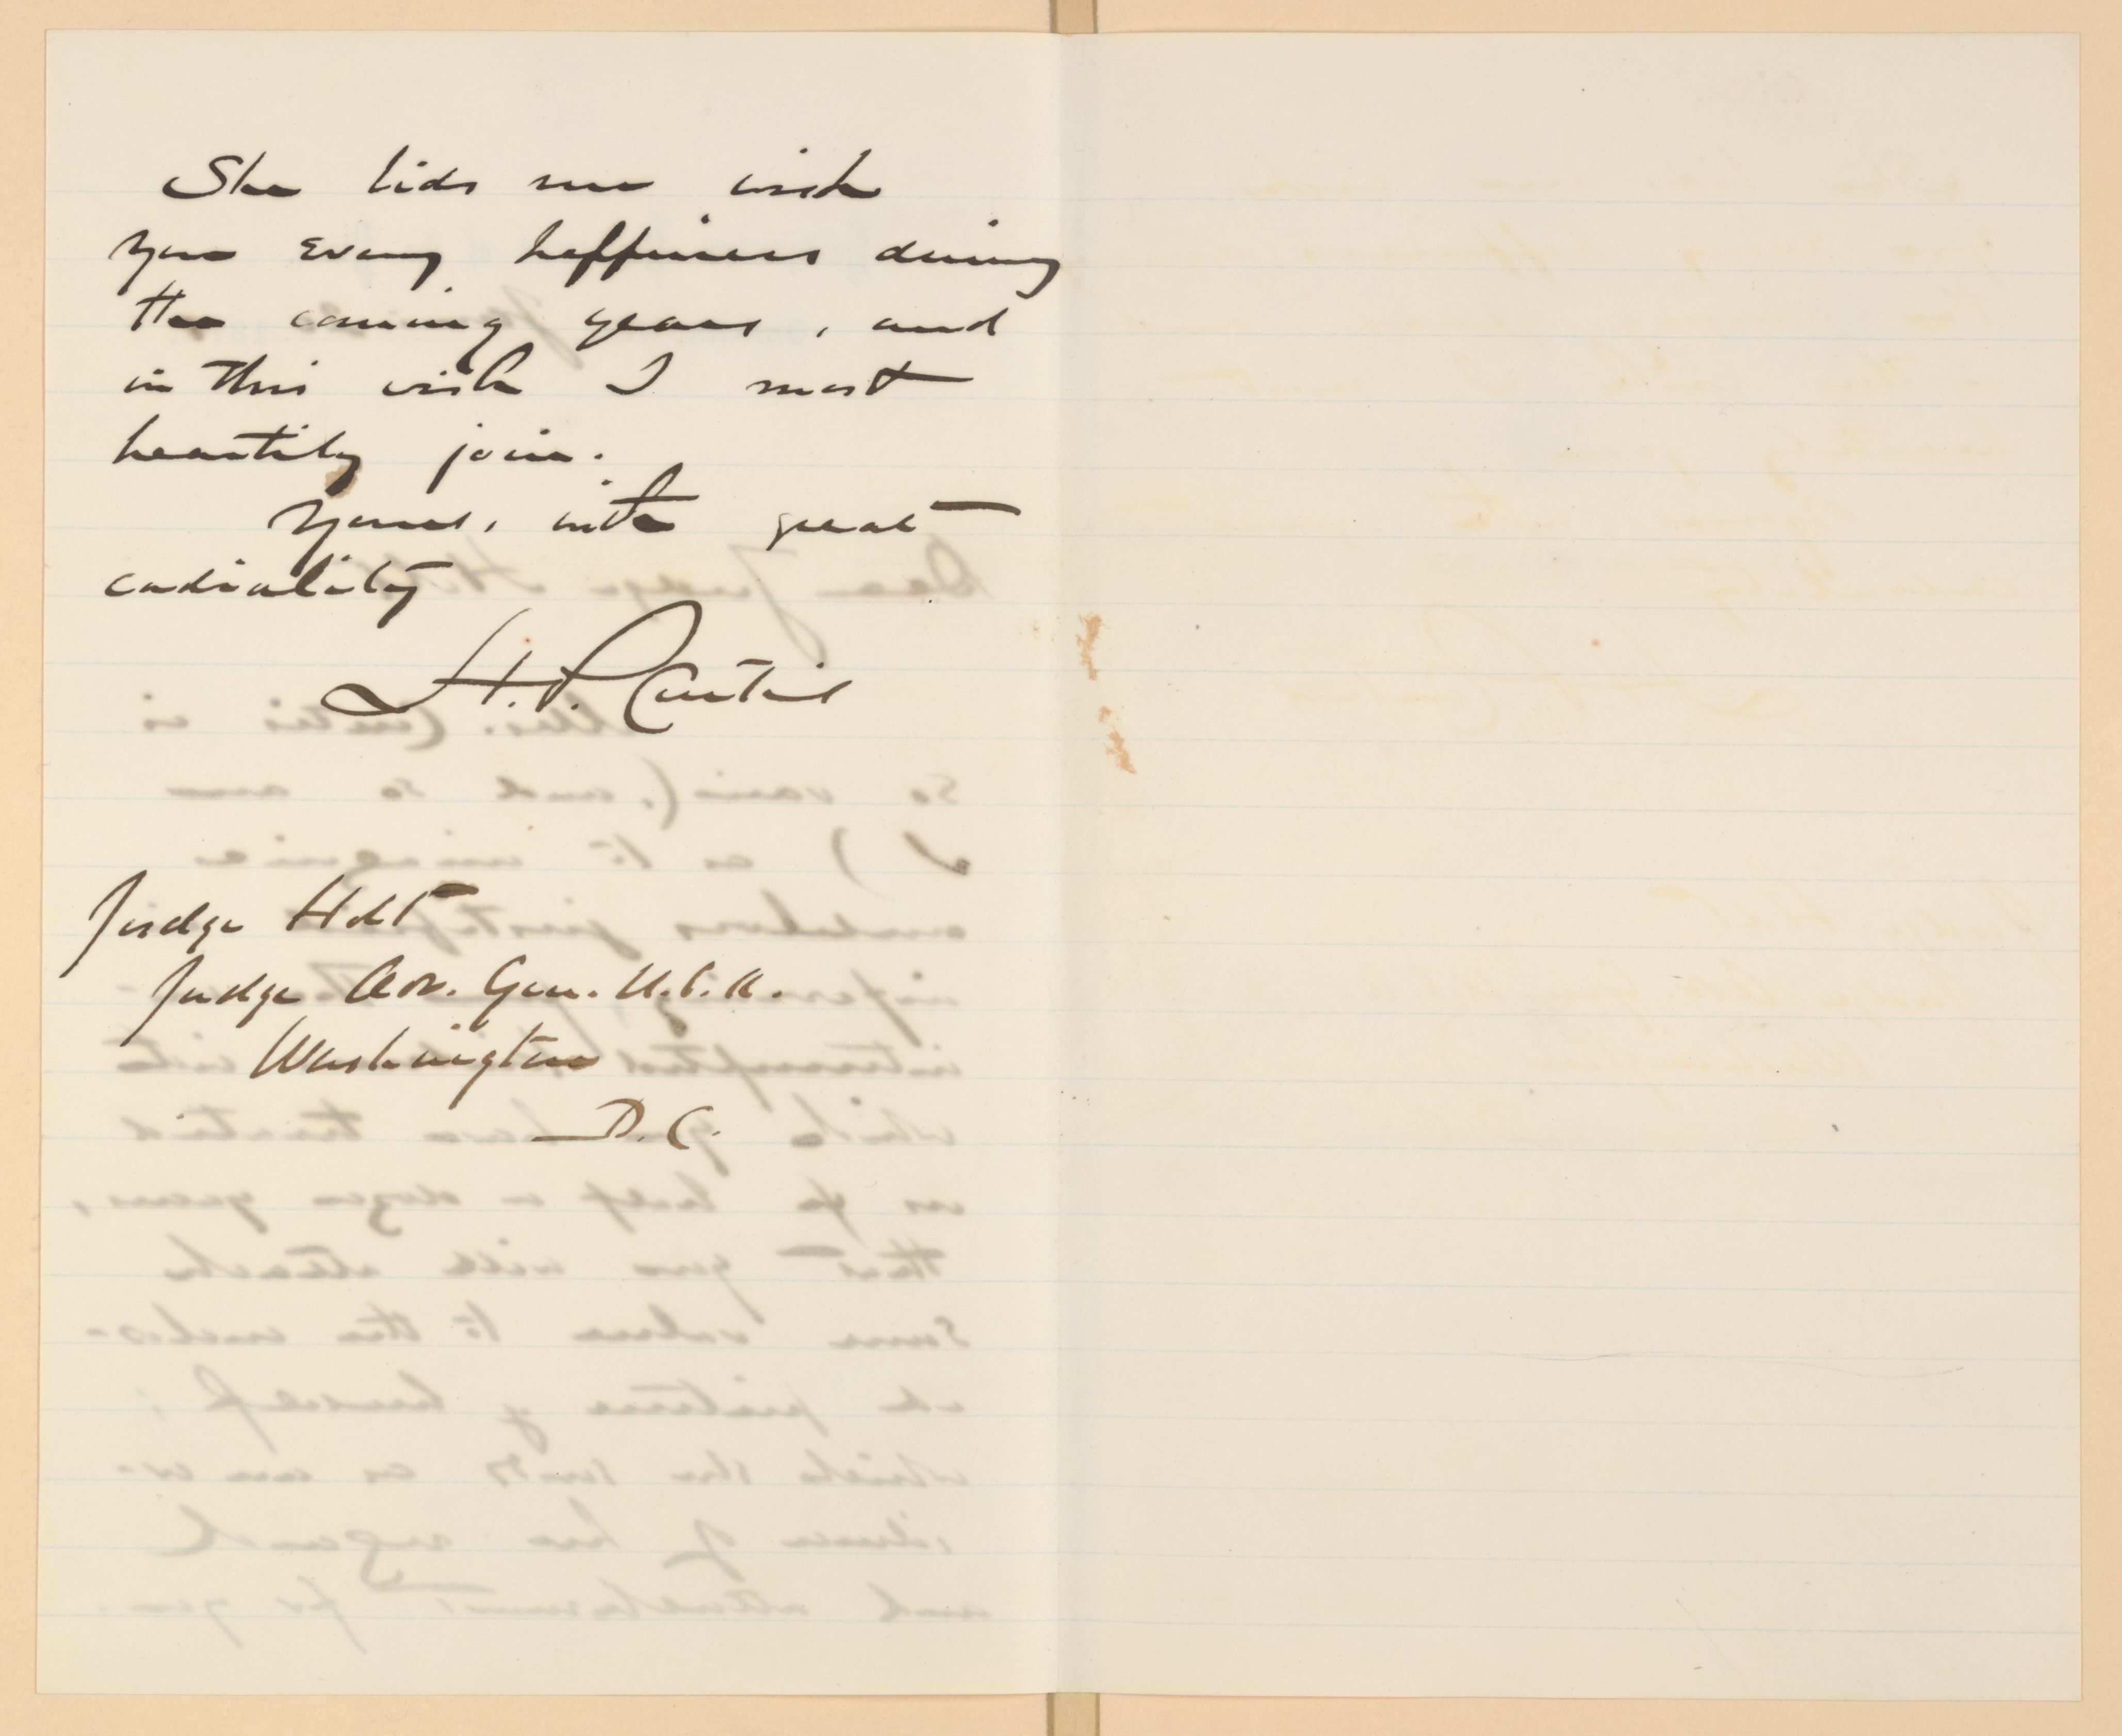 She bids me wish
you every happiness during
the coming years, and
in this wish I most
heartily join.
Yours, with great
cordiality
H. P. Curtis
Judge Holt
Judge Adv. Gen. U.S.A.
Washington
D. C.